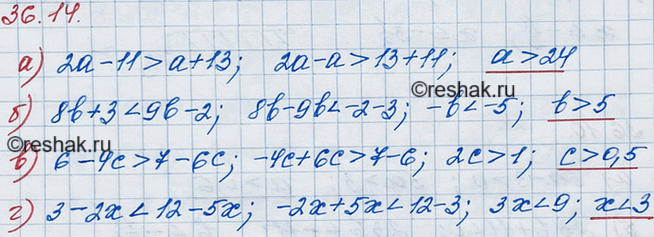 36.14.
а) 2a-11>a+13; 2a-a>13+11; a>24
б) 8b+3<9b-2; 8b-9b<-2-3; -b<-5; b>5
в) 6-4c>7-6c; -4c+6c>7-6; 2c>1; c>0,5
г) 3-2x<12-5x; -2x+5x<12-3; 3x<9; x<3
©reshak.ru
©reshak.ru